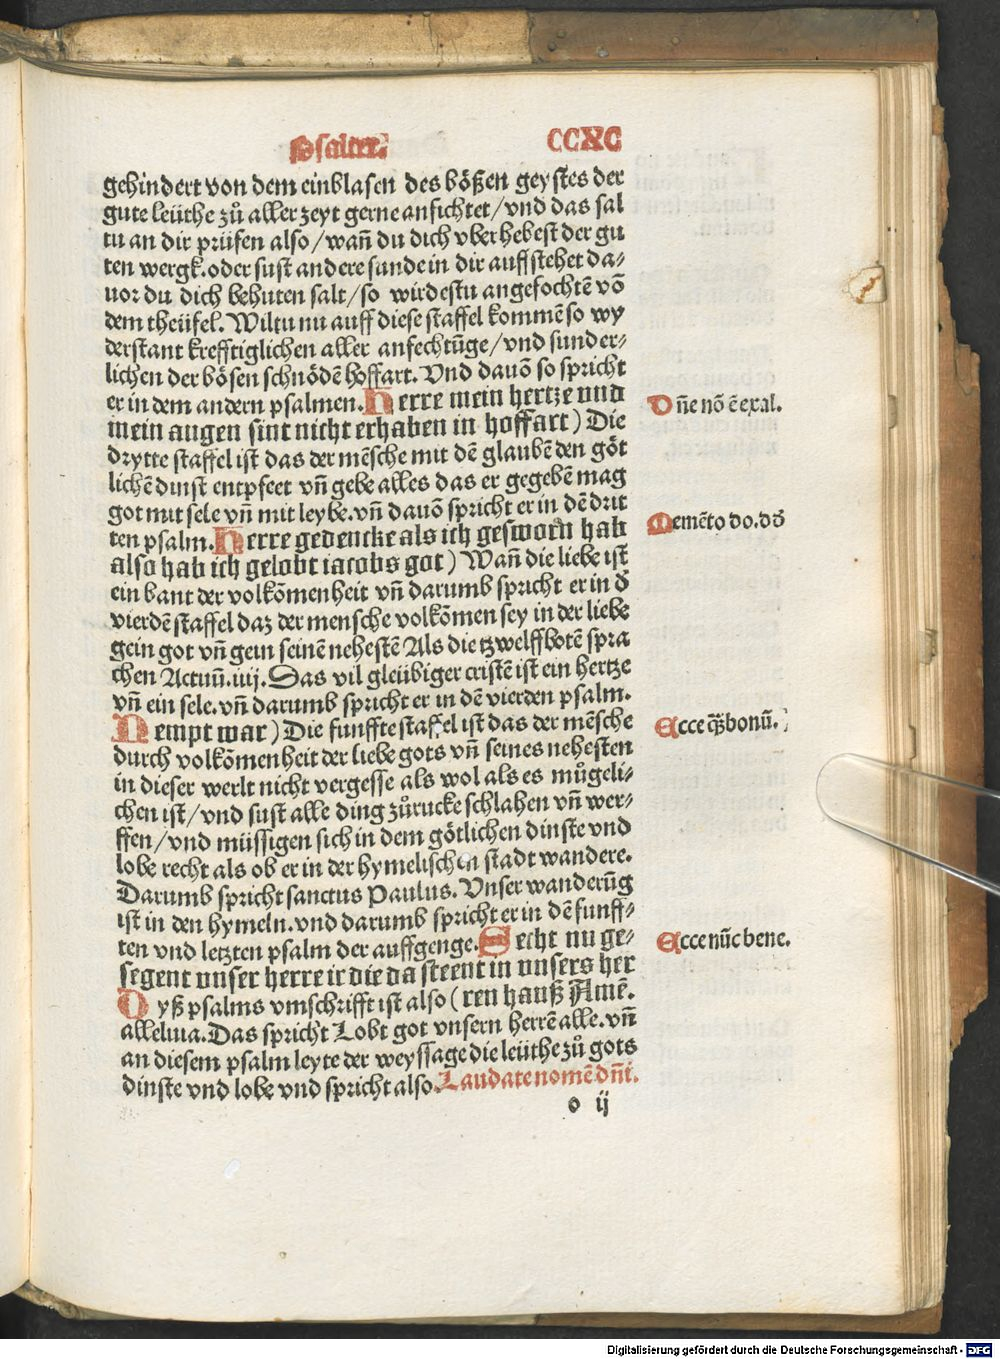 Psalter. CCXC
gehindert von dem einblasen des bößen geystes der
gute leüthe zů aller zeyt gerne anfichtet/vnd das sal
tu an dir prüfen also/wañ du dich vberhebest der gu
ten wergk.oder sust andere sunde in dir auffstehet da⸗
uor du dich behuten salt/so wirdestu angefochtē võ
dem theüfel. Wiltu nu auff diese staffel kommē so wy
derstant krefftiglichen aller anfechtũge/vnd sunder⸗
lichen der bösen schnödē hoffart. Vnd dauõ so spricht
er in dem andern psalmen. Herre mein hertze vnd
mein augen sint nicht erhaben in hoffart) Die
drytte staffel ist das der mēsche mit dē glaubē den göt
lichē dinst entpfeet vñ gebe alles das er gegebē mag
got mit sele vñ mit leybe.vñ dauõ spricht er in dē drit
ten psalm. Herre gedencke als ich gesworn hab
also hab ich gelobt iacobs got) Wañ die liebe ist
ein bant der volkõmenheit vñ darumb spricht er in d̄
vierdē staffel daz der mensche volkõmen sey in der liebe
gein got vñ gein seinē nehestē Als die tzwelffbotē spra
chen Actuũ.iiij. Das vil gleübiger cristē ist ein hertze
vñ ein sele.vñ darumb spricht er in dē vierden psalm.
Nempt war) Die funffte staffel ist das der mēsche
durch volkõmenheit der liebe gots vñ seines nehesten
in dieser werlt nicht vergesse als wol als es můgeli⸗
chen ist/vnd sust alle ding zůrucke schlahen vñ wer⸗
ffen/vnd müssigen sich in dem götlichen dinste vnd
lobe recht als ob er in der hymelischen stadt wandere.
Darumb spricht sanctus Paulus. Vnser wanderũg
ist in den hymeln.vnd darumb spricht er in dē funff⸗
ten vnd letzten psalm der auffgenge. Secht nu ge⸗
segent vnser herre ir die da steent in vnsers her
Dyß psalms vmschrifft ist also (ren hauß Amē.
alleluia. Das spricht Lobt got vnsern herrē alle.vñ
an diesem psalm leyte der weyssage die leüthe zů gots
dinste vnd lobe vnd spricht also. Laudate nomē dñi.
o ij
Dñe nõ ē exal.
Memēto do.dd̄
Ecce q̃ȝ bonũ.
Ecce nũc bene.
Digitalisierung gefördert durch die Deutsche Forschungsgemeinschaft - DFG